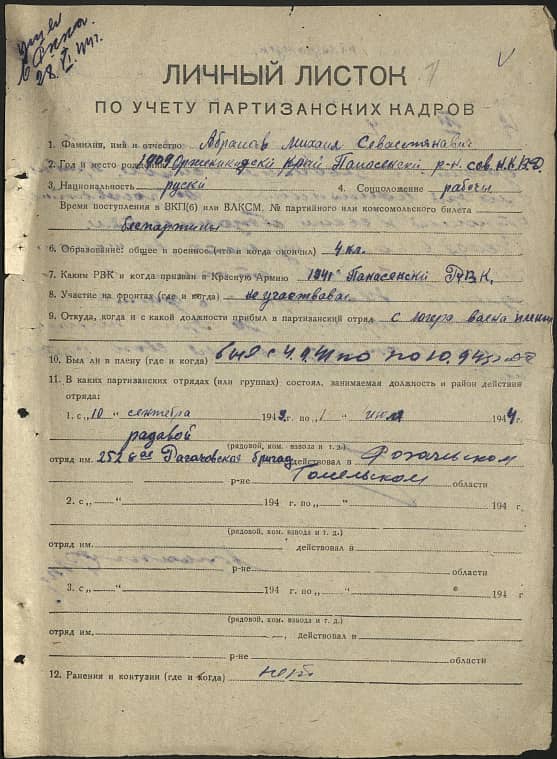 28.VI.44г.
ЛИЧНЫЙ ЛИСТОК
ПО УЧЕТУ ПАРТИЗАНСКИХ КАДРОВ
1. Фамилия, имя и отчество Абрамов Михаил Севастянавич
2. Год и место рождения 1909 Орженикидзский край Панасенский р-н. сов. Н.К.В.Д.
3. Национальность руский 4. Соцположение рабочий
Время поступления в ВКП(б) или ВЛКСМ, № партийного или комсомольского билета
беспартийный
6. Образование: общее и военное (что и когда окончил) 4 кл.
7. Каким РВК и когда призван в Красную Армию 1941 Панасенский РВК,
8. Участие на фронтах (где и когда) не участвавал
9. Откуда, когда и с какой должности прибыл в партизанский отряд с лагера
10. Был ли в плену (где и когда) был с
11. В каких партизанских отрядах (или группах) состоял, занимаемая должность и район действия
отряда:
1. с „10" сентября 1943 г. по „1" июля 1944 г.
радавой
(рядовой, ком. взвода и т. д.)
отряд им. 252 бригад действовал в
р-не Гомельском области
2. с „ " 194 г. по „ " 194 г.
(рядовой, ком. взвода и т. д.)
отряд им. действовал в
р-не области
3. с „ " 194 г. по „ " 194 г
(рядовой, ком. взвода и т. д.)
отряд им. действовал в
р-не области
12. Ранения и контузии (где и когда) нет